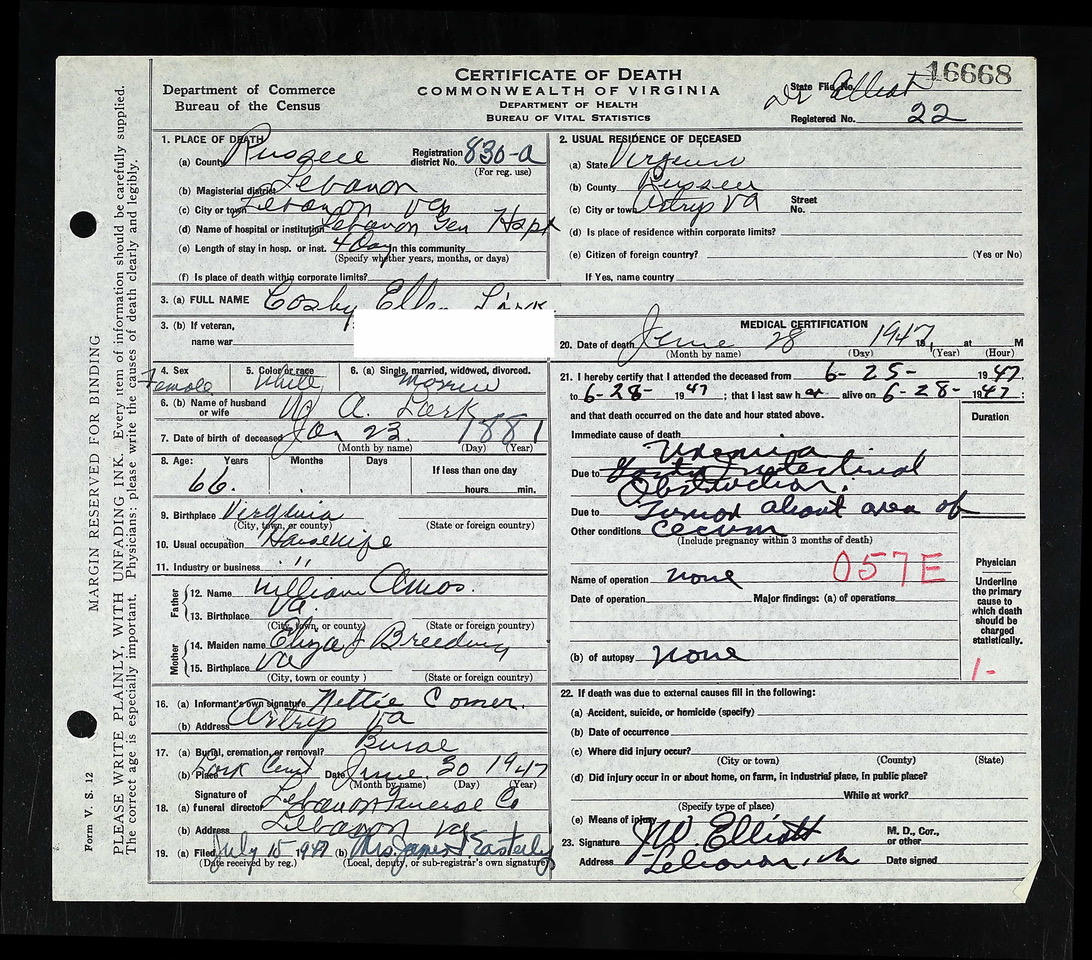 CERTIFICATE OF DEATH
COMMONWEALTH OF VIRGINIA
DEPARTMENT OF HEALTH
BUREAU OF VITAL STATISTICS
Department of Commerce
Bureau of the Census
State File No. 16668
Dr Elliott
Registered No. 22
MARGIN RESERVED FOR BINDING
PLEASE WRITE PLAINLY, WITH UNFADING INK. Every item of information should be carefully supplied.
The correct age is especially important. Physicians: please write the causes of death clearly and legibly.
Form V. S. 12
1. PLACE OF DEATH
(a) County Russell Registration district No. 830-a
(For reg. use)
(b) Magisterial district Lebanon
(c) City or town Lebanon Va
(d) Name of hospital or institution Lebanon Gen Hspt
(e) Length of stay in hosp. or inst. 4 Day In this community
(Specify whether years, months, or days)
(f) Is place of death within corporate limits?
2. USUAL RESIDENCE OF DECEASED
(a) State Virginia
(b) County Russell
(c) City or town Artrip Va Street No.
(d) Is place of residence within corporate limits?
(e) Citizen of foreign country? (Yes or No)
If Yes, name country
3. (a) FULL NAME Cosby Ellen Lark
3. (b) If veteran,
name war
4. Sex Female 5. Color or race White 6. (a) Single, married, widowed, divorced.
6. (b) Name of husband or wife A. Lark
7. Date of birth of deceased Jan 23 1881
(Month by name) (Day) (Year)
8. Age: Years Months Days If less than one day
66. hours min.
9. Birthplace Virginia
(City, town, or county) (State or foreign country)
10. Usual occupation Housewife
11. Industry or business "
Father
12. Name William Amos.
13. Birthplace Va.
(City, town, or county) (State or foreign country)
Mother
14. Maiden name Eliza J Breeding
15. Birthplace Va
(City, town, or county ) (State or foreign country)
16. (a) Informant's own signature Nettie Comer.
(b) Address Artrip Va
17. (a) Burial, cremation, or removal? Burial
(b) Place Lark Cem Date June. 30 1947
(Month by name) (Day) (Year)
18. Signature of
(a) funeral director Lebanon Funeral Co
(b) Address Lebanon Va
19. (a) Filed July 15, 1947 (b) Mrs James Easterly
(Date received by reg.) (Local, deputy, or sub-registrar's own signature)
MEDICAL CERTIFICATION
20. Date of death June 28 1947 at M
(Month by name) (Day) (Year) (Hour)
21. I hereby certify that I attended the deceased from 6-25- 1947
to 6-28- 1947; that I last saw her alive on 6-28- 1947;
and that death occurred on the date and hour stated above.
Duration
Immediate cause of death
Uremia
Due to Gastro Intestinal
Obstruction.
Due to Tumor about area of
Other conditions Cecum
(Include pregnancy within 3 months of death)
057E
Name of operation none
Date of operation Major findings: (a) of operations
(b) of autopsy none
Physician
Underline the primary cause to which death should be charged statistically.
1-
22. If death was due to external causes fill in the following:
(a) Accident, suicide, or homicide (specify)
(b) Date of occurrence
(c) Where did injury occur?
(City or town) (County) (State)
(d) Did injury occur in or about home, on farm, in industrial place, in public place?
While at work?
(Specify type of place)
(e) Means of injury
23. Signature JW Elliott M. D., Cor., or other
Address Lebanon, Va Date signed